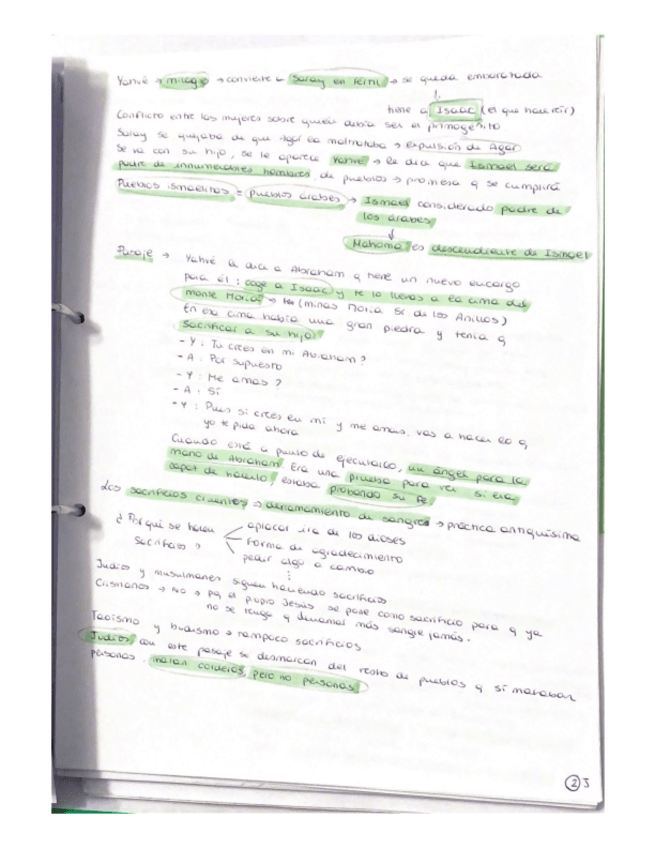 Yahvé → milagro → convierte a Saray en fértil → se queda embarazada
↓
tiene a Isaac (el que hace reír)
Conflicto entre las mujeres sobre quien debía ser el primogénito
Saray se quejaba de que Agar la maltrataba → expulsión de Agar
Se va con su hijo, se le aparece Yahvé → le dice que Ismael será
padre de innumerables hombres, de pueblos → promesa q se cumplirá
Pueblos ismaelitas = pueblos árabes → Ismael considerado padre de
los árabes
↓
Mahoma es descendiente de Ismael
Pasaje → Yahvé le dice a Abraham q tiene un nuevo encargo
para él: coge a Isaac y te lo llevas a la cima del
monte Moria → (minas Moria Sr de los Anillos)
En esa cima había una gran piedra y tenía q
sacrificar a su hijo
- Y: Tu crees en mi Abraham?
- A: Por supuesto
- Y: Me amas?
- A: Sí
- Y: Pues si crees en mi y me amas, vas a hacer lo q
yo te pida ahora
Cuando está a punto de ejecutarlo, un ángel para la
mano de Abraham. Era una prueba para ver si era
capaz de hacerlo, estaba probando su fe
Los sacrificios cruentos → derramamiento de sangre → práctica antiquísima
¿Por qué se hacen aplacar ira de los dioses
sacrificios? forma de agradecimiento
pedir algo a cambio
Judíos y musulmanes siguen haciendo sacrificios
Cristianos → No → pq el propio Jesús se pone como sacrificio para q ya
no se tenga q derramar más sangre jamás.
Taoísmo y budismo → tampoco sacrificios.
Judíos con este pasaje se desmarcan del resto de pueblos q sí mataban
personas. matan corderos, pero no personas
2 J